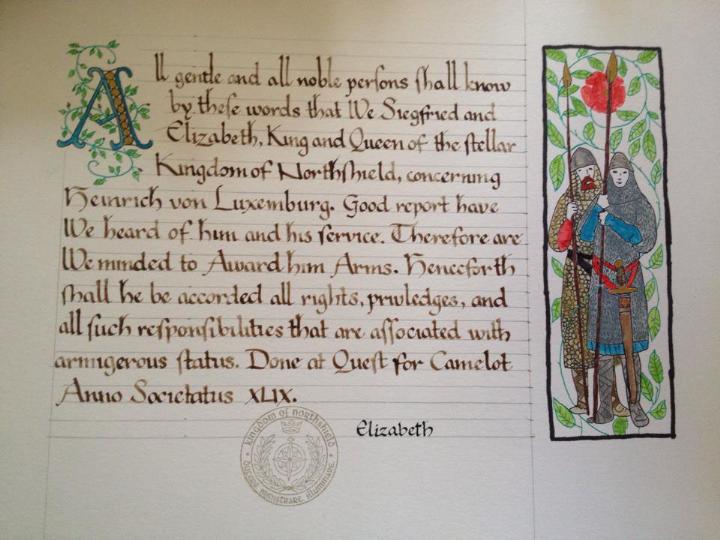 All gentle and all noble persons shall know
by these words that We Siegfried and
Elizabeth, King and Queen of the stellar
Kingdom of Northshield, concerning
Heinrich von Luxemburg. Good report have
We heard of him and his service. Therefore are
We minded to Award him Arms. Henceforth
shall he be accorded all rights, priviledges, and
all such responsibilities that are associated with
armigerous status. Done at Quest for Camelot
Anno Societatus XLIX.
Elizabeth
kingdom of northshield
ducere monstrare illuminare